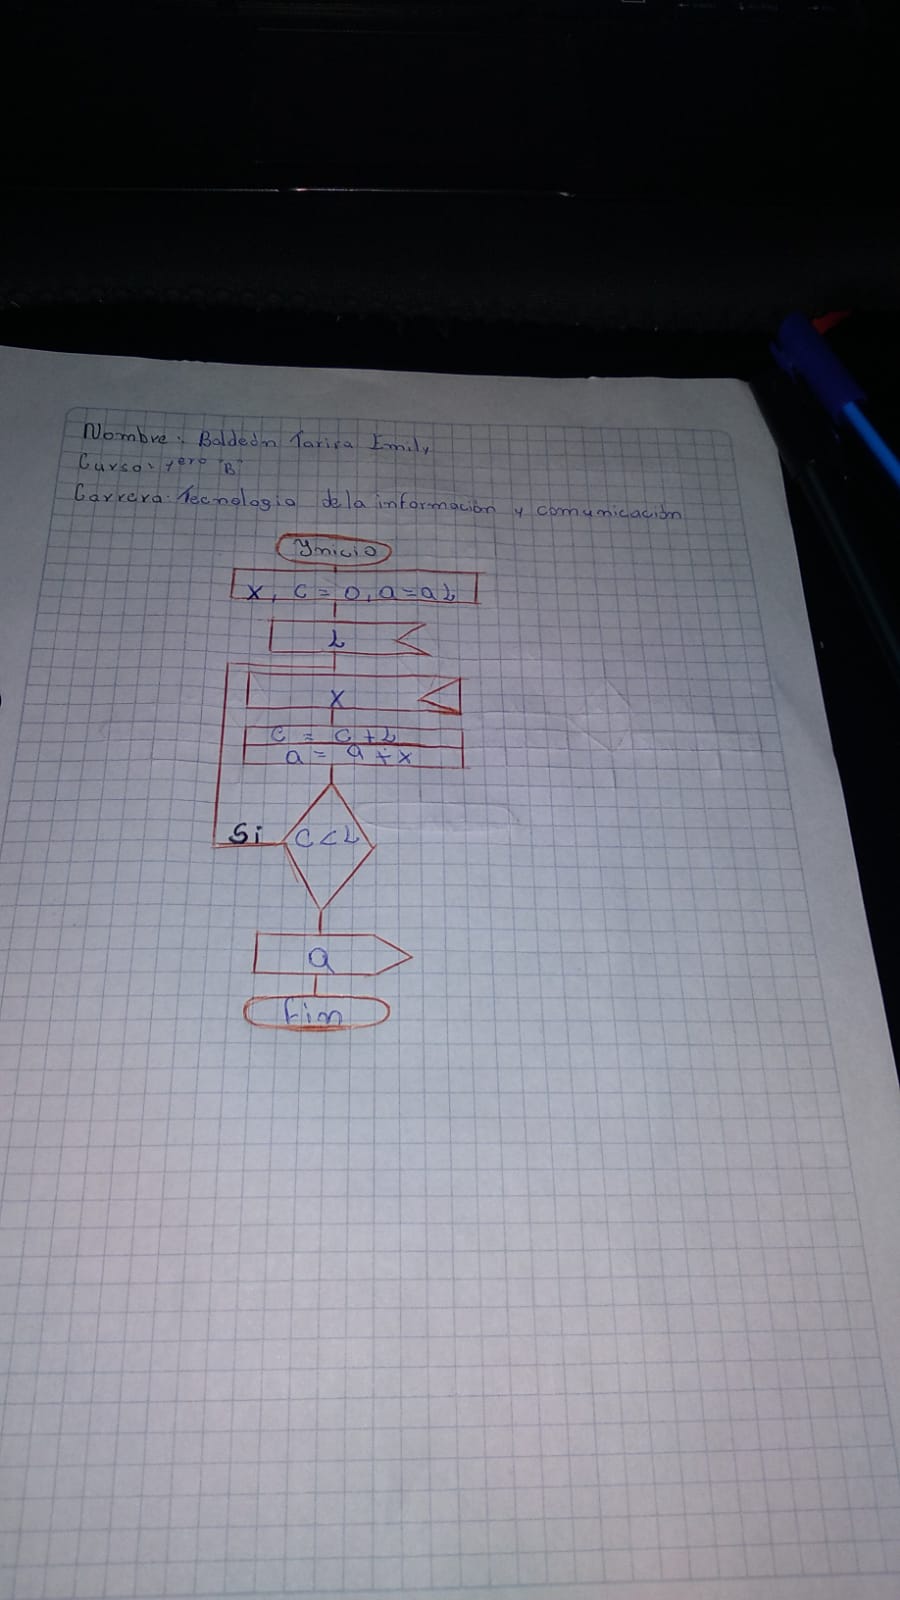 Nombre: Baldeón Tarira Emily
Curso: 1ero "B"
Carrera: Tecnologia de la información y comunicación
Ynicio
X, C = 0, a = a L
L
X
C = C + L
a = a + x
Si C < L
a
Fin